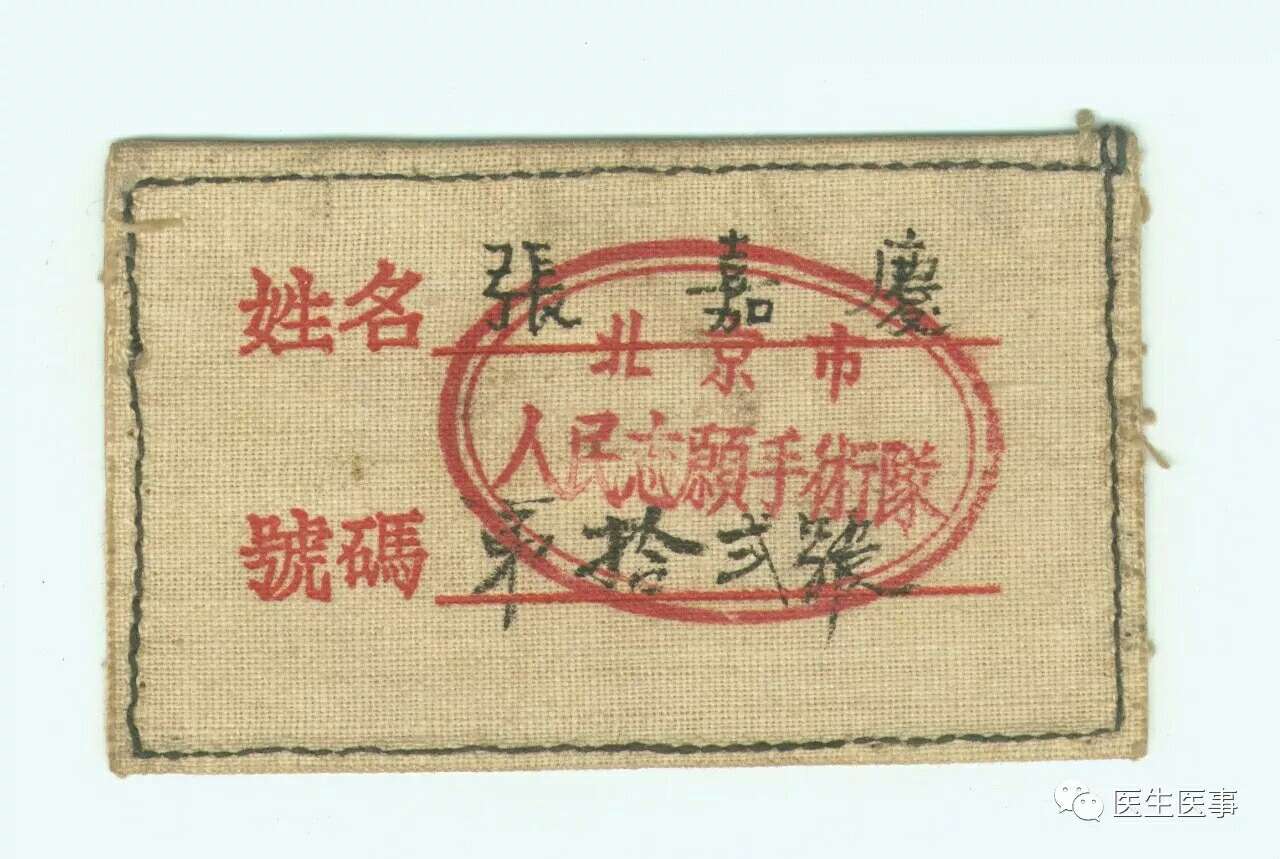 姓名 張嘉慶
北京市
人民志願手術隊
號碼 第拾弍號
医生医事